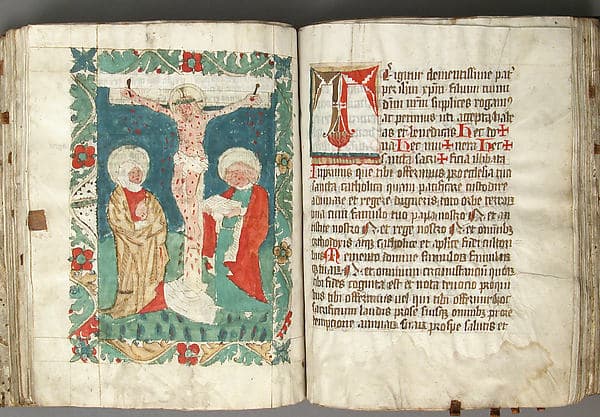 TE igitur clementissime pat
per ihm xpm filium tuum
dnm nrm supplices rogam
ac petimus uti accepta habe
as et benedicas Hec do✠
na Hec mu✠nera Hec ✠
sancta sacri✠ficia illibata
Inprimis que tibi offerimus pro ecclesia tua
sancta catholica quam pacificare custodire
adunare et regere digneris toto orbe terrarum
una cum famulo tuo papa nostro N et an
tistite nostro N et rege nostro N et omnibus
orthodoxis atque catholice et aplice fidei cultori
bus Memento domine famulorum famularum
tuarum N Et omnium circumstancium quorum
tibi fides cognita est et nota devocio pro qui
bus tibi offerimus vel qui tibi offerunt hoc
sacrificium laudis pro se suisque omnibus pro re
dempcione animarum suarum pro spe salutis et